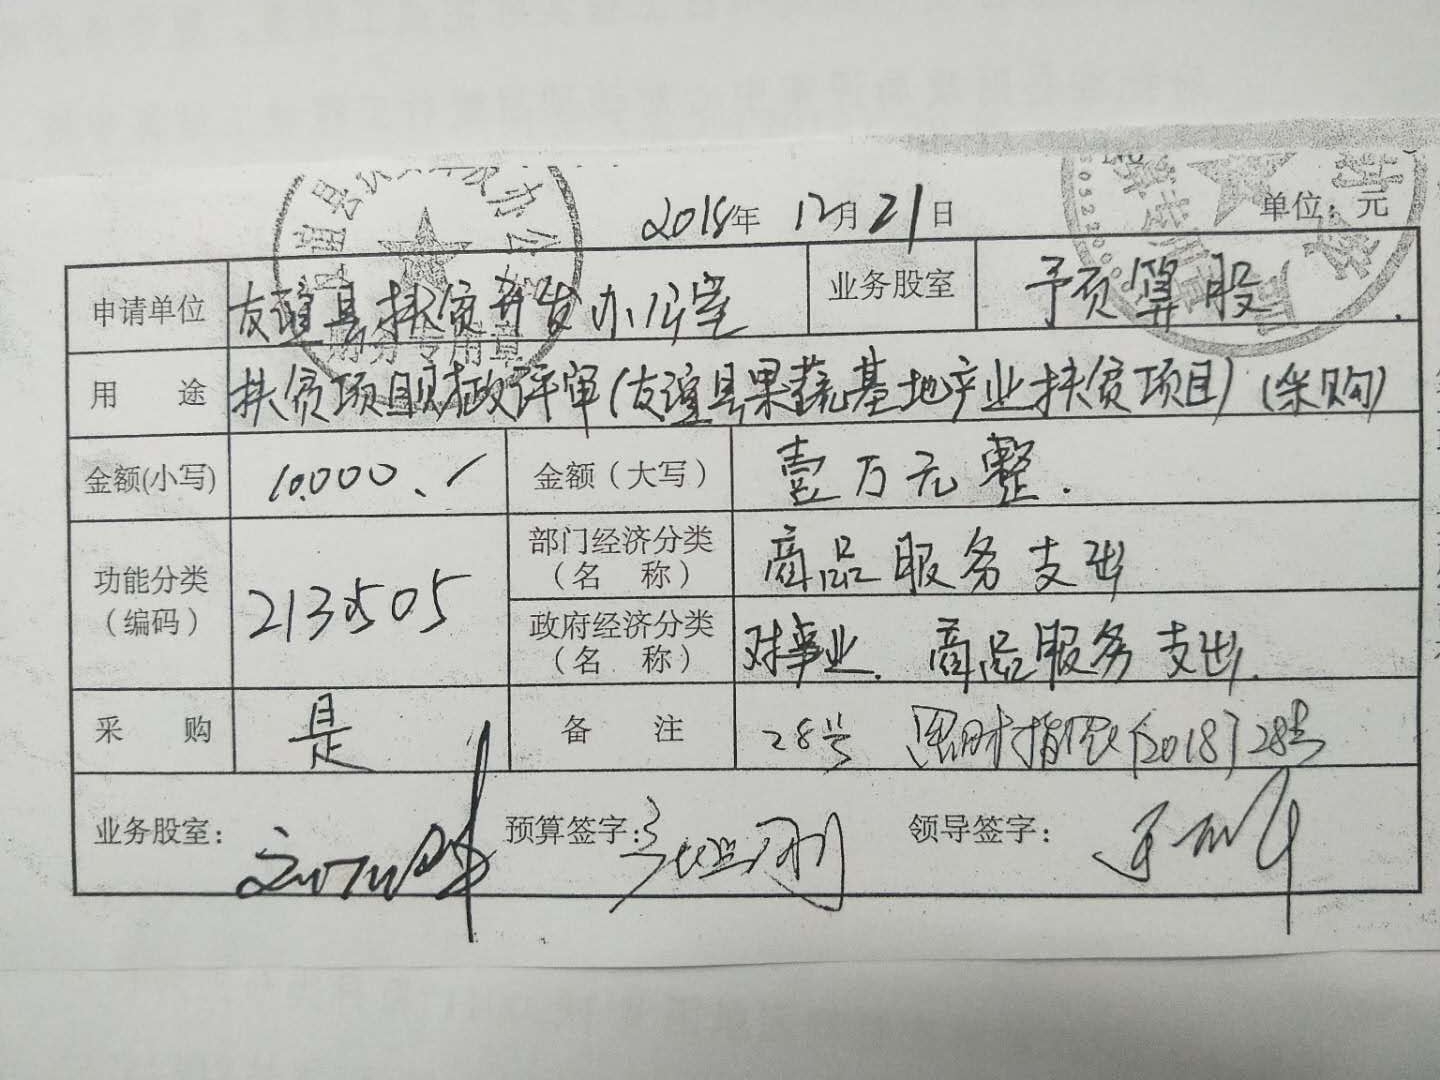 2018年 12月21日 单位：元
申请单位 友谊县扶贫开发办公室 业务股室 予页算股
用 途 扶贫项目财政评审(友谊县果蔬基地产业扶贫项目)(采购)
金额(小写) 10.000.- 金额（大写） 壹万元整.
功能分类（编码） 2130505 部门经济分类（名 称） 商品服务支出
政府经济分类（名 称） 对事业. 商品服务支出.
采 购 是 备 注 28号 黑财指(农)〔2018〕28号
业务股室： 预算签字： 领导签字：
财务专用章